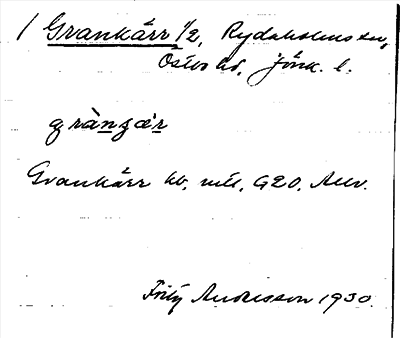 / Grankärr 1/2, Rydaholms sn,
Östbo hd, Jönk. l.
grànɕær
Grankärr hd, mtl, G20, Allv.
Fritz Andersson 1930.